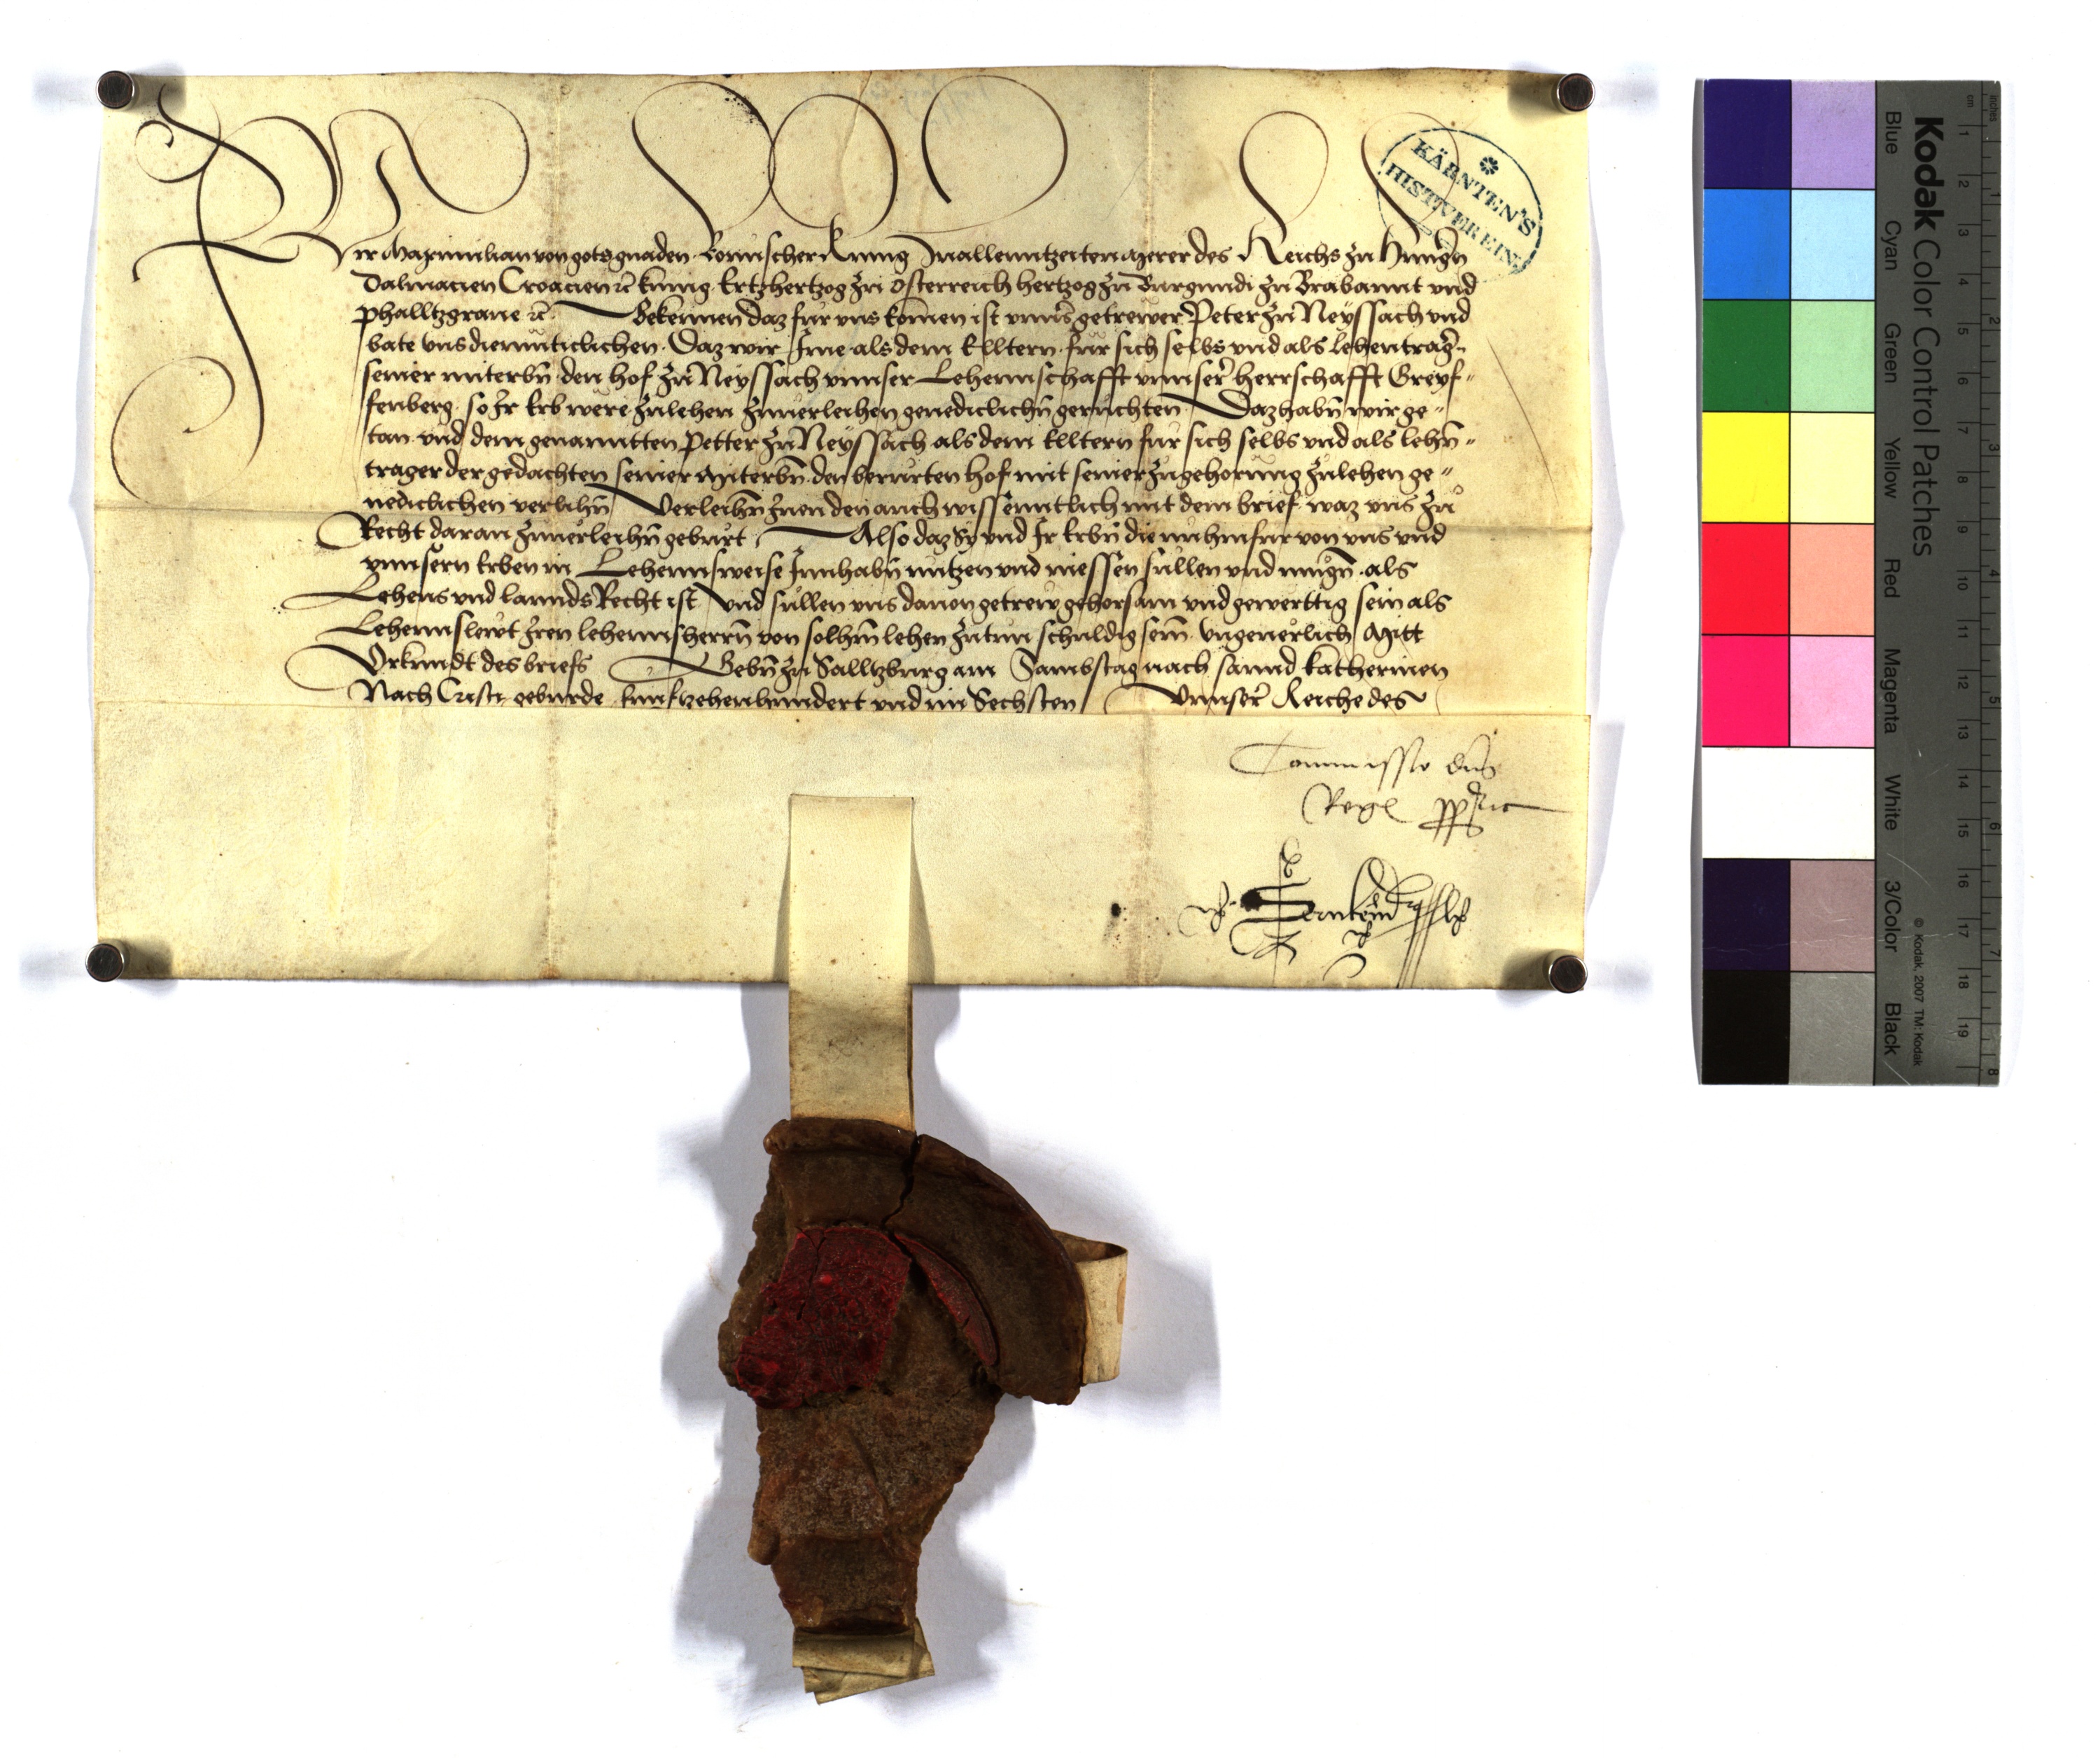 Wir Maximilian von gots gnaden Romischer Kunig zu allenntzeiten merer des Reichs zu Hungrn
Dalmacien Croacien ⁊c kunig Ertzhertzog zu Osterreich hertzog zu Burgundi zu Brabannt und
phalltzgrave ⁊c Bekennen daz fur uns komen ist unnser getrewer Peter zu Neyssach und
bate uns diemuticlichen Daz wir Ime als dem Elltern fur sich selbs und als lehentrager
seiner miterbn den hof zu Neyssach unnser Lehennschafft unnser herrschafft Greyf„
fenberg so Ir Erb were zulehen zuuerleihen genediclichn geruchten Daz habn wir ge„
tan und dem genanntten Petter zu Neyssach als dem Elltern fur sich selbs und als lehn„
trager der gedachten seiner miterbn den berurten hof mit seiner zugehorung zulehen ge„
nediclichen verlihn Verleihn Inen den auch wissenntlich mit dem brief waz uns zu
Recht daran zuuerleihn geburt Also daz Sy und Ir Erbn die nu hinfur von uns und
unnsern Erben in Lehennsweise Innhabn nutzen und niessen sullen und mugn als
Lehens und lannds Recht ist Und sullen uns dauon getrew gehorsam und gewerttig sein als
Lehennslewt Iren lehennsherrn von solhn lehen zutun schuldig sein Ungeuerlich Mitt
Urkundt des briefs Gebn zu Salltzburg am Sambstag nach sannd katherinen
Nach Cristi geburde funfzehenhundert und im Sechsten Unnser Reiche des
Commissio dni
Regis pp
KÄRNTEN'S
HIST.VEREIN
Kodak Color Control Patches
Blue Cyan Green Yellow Red Magenta White 3/Color Black
© Kodak, 2007 TM: Kodak
cm 1 2 3 4 5 6 7 8 9 10 11 12 13 14 15 16 17 18 19
inches 1 2 3 4 5 6 7 8